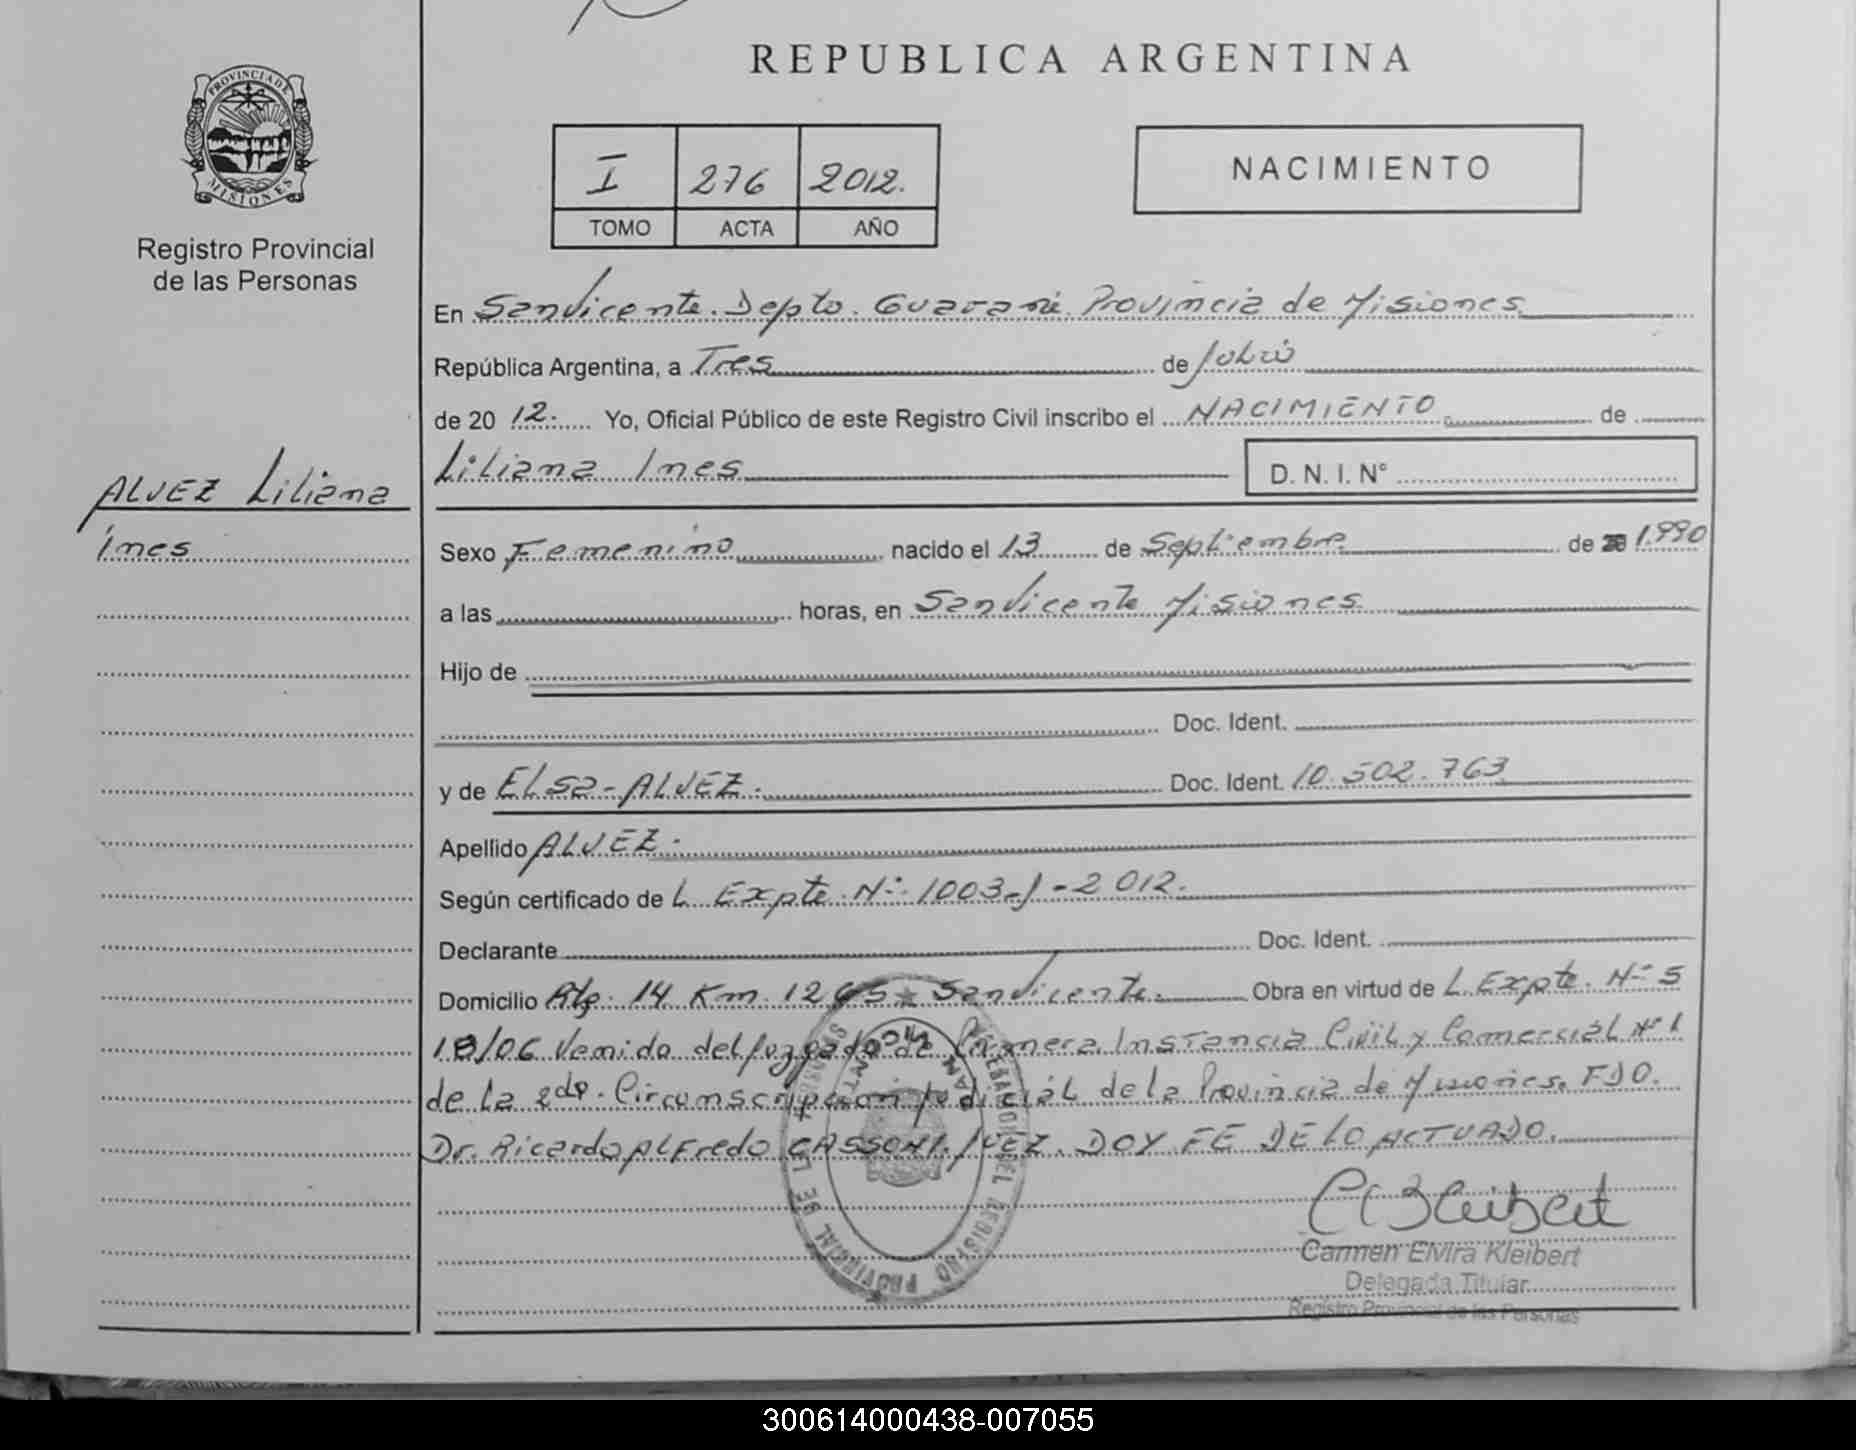 REPUBLICA ARGENTINA
PROVINCIA DE MISIONES
Registro Provincial
de las Personas
I 276 2012.
TOMO ACTA AÑO
NACIMIENTO
En San Vicente. Depto. Guarani. Provincia de Misiones
República Argentina, a Tres de Julio
de 2012. Yo, Oficial Público de este Registro Civil inscribo el NACIMIENTO de
Liliana Ines D. N. I. N°
ALVEZ Liliana
ines
Sexo Femenino nacido el 13 de Septiembre de 1990
a las horas, en San Vicente Misiones
Hijo de
Doc. Ident.
y de ELSa-ALVEZ. Doc. Ident. 10.502.763
Apellido ALVEZ.
Según certificado de L Expte. N° 1003-J-2012.
Declarante Doc. Ident.
Domicilio 14 Km. 1265 San Vicente. Obra en virtud de L. Expte. N° 5
18/06 Venido del Juzgado de Primera Instancia Civil y Comercial N° 1
de la 2da. Circunscripcion Judicial de la Provincia de Misiones. FDO.
Dr. Ricardo ALFredo CASSONI. JUEZ. DOY FE DE LO ACTUADO.
Carmen Elvira Kleibert
Delegada Titular
Registro Provincial de las Personas
300614000438-007055